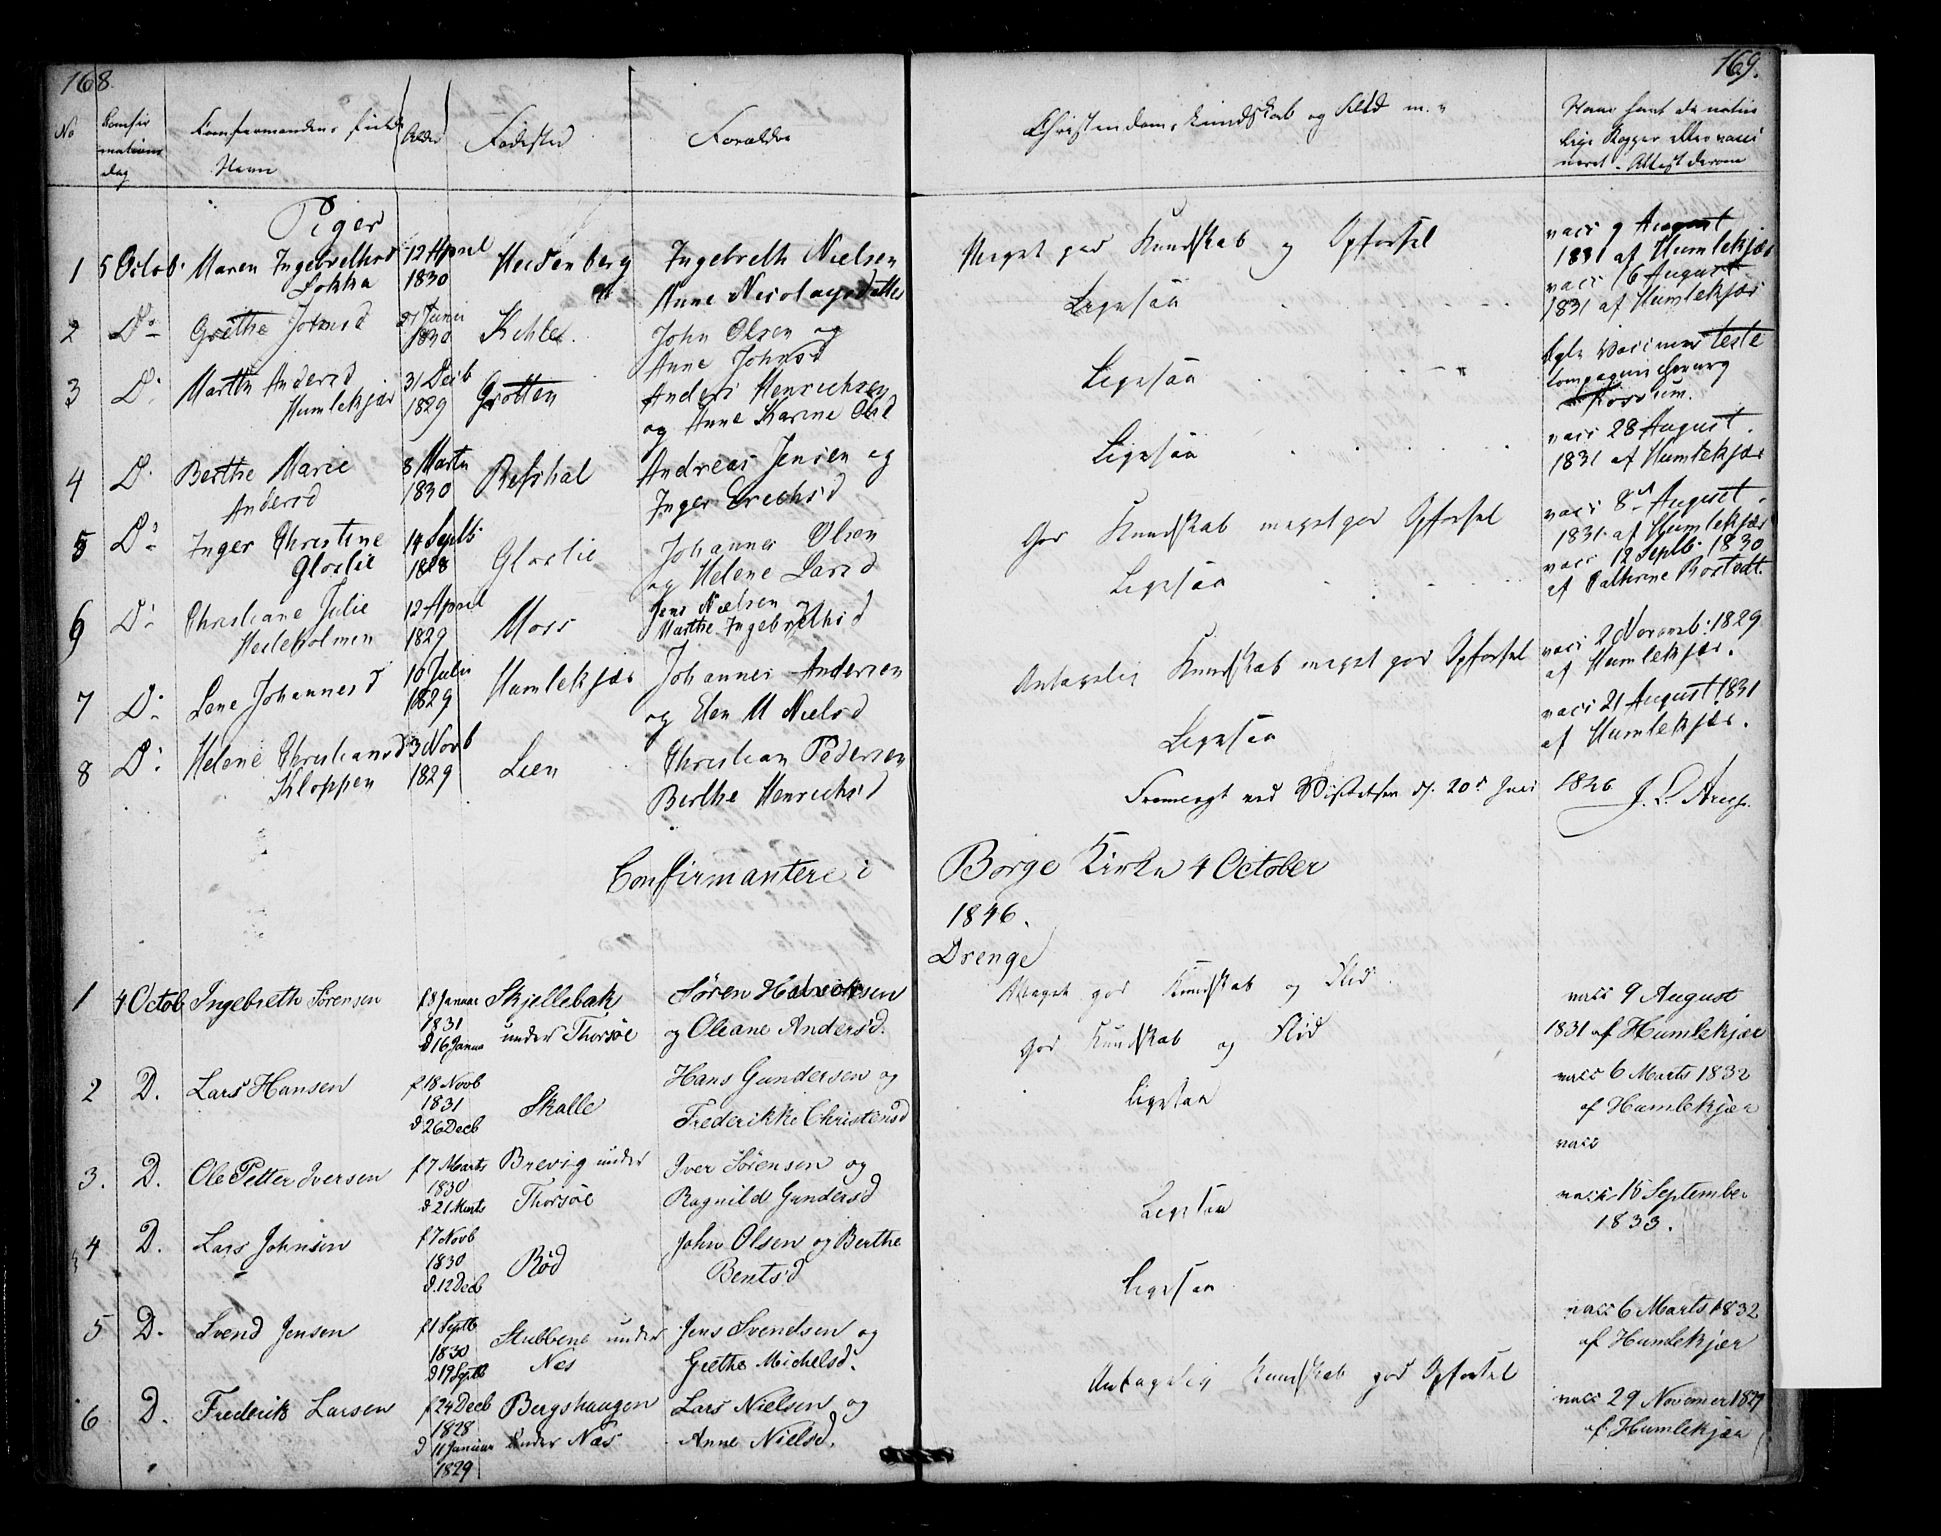 168.
169.
No
Confir
mations
dag
Confirmandens fulde
Navn
Alder
Fødested
Forældre
Christendoms kundskab og Flid m. v
Have havt de natur
lige Kopper eller vacci
neret - Attest derom
Piger
1 5 Octob. Maren Ingebrethsd 12 April Heisenberg Ingebreth Nielsen Meget god Kundskab og Opførsel vacc 9 August
Lokka 1830 Anne Nicolaysdatter 1831 af Humlekjær
2 Do Grethe Johnsd 21 Junei Kihle John Olsen og Ligesaa vacc 16 August
1830 Anne Johnsd 1831 af Humlekjær
3 D. Marthe Andersd 31 Decb Grotten Anders Henrichsen Ligesaa teste
Humlekjær 1829 og Anne Karine Olsd
4 D. Berthe Marie 8 Marts Refshal Andreas Jensen og Ligesaa vacc 28 August
Andersd 1830 Inger Erechsd 1831 af Humlekjær
5 Do Inger Christine 14 Septb. Gloslie Johannes Olsen God Kundskab meget god Opførsel vacc 8 August
Gloslie 1828 og Helene Larsd 1831 af Humlekjær
6 D. Christiane Julie 12 April Moss Jens Nielsen og Ligesaa vacc 12 Septb. 1830
Heileholmen 1829 Marthe Ingebrethsd af Cathrine Rostodt.
7 D. Lene Johannesd 10 Julii Humlekjær Johannes Andersen Antagelig Kundskab meget god Opførsel vacc 2 Novemb: 1829
1829 og Elen M Nielsd af Humlekjær.
8 D. Helene Christiansd 3 Novb Lien Christian Pedersen Ligesaa vacc 21 August 1831
Kloppen 1829 Berthe Henrichsd af Humlekjær.
Fremlagt ved Visitatsen d. 20 Juni 1846 J. L. Arup.
Confirmantere i Borge Kirke 4 October
1846.
Drenge
1 4 Octob Ingebreth Sørensen f. 8 Januar Skjellebak Søren Halvorsen Meget god Kundskab og Flid vacc 9 August
1831 d 16 Januar under Thorsøe og Oleane Andersd. 1831 af Humlekjær
2 D. Lars Hansen f 18 Novb Skalle Hans Gundersen og God Kundskab og Flid vacc 6 Marts 1832
1831 d 26 Decb Frederikke Christensd af Humlekjær
3. D. Ole Petter Iversen f 7 Marts Brevig under Iver Sørensen og Ligesaa vacc
1830 d 21 Marts Thorsøe Ragnilds Gundersd
4 D. Lars Johnsen f 7 Novb Rød John Olsen og Berthe Ligesaa vacc 15 September
1830 d. 12 Decb Bentsd 1833.
5 D. Svend Jensen f 1 Septb Stubbene under Jens Svendsen og Ligesaa vacc 6 Marts 1832
1830 d 19 Septb Næs Grethe Michelsd. af Humlekjær
6 D. Frederik Larsen f 24 Decb Bergshaugen Lars Nielsen og Antagelig Kundskab god Opførsel vacc 29 Novemer 1829
1828 d 11 Januar under Næs Anne Nielsd. af Humlekjær
1829